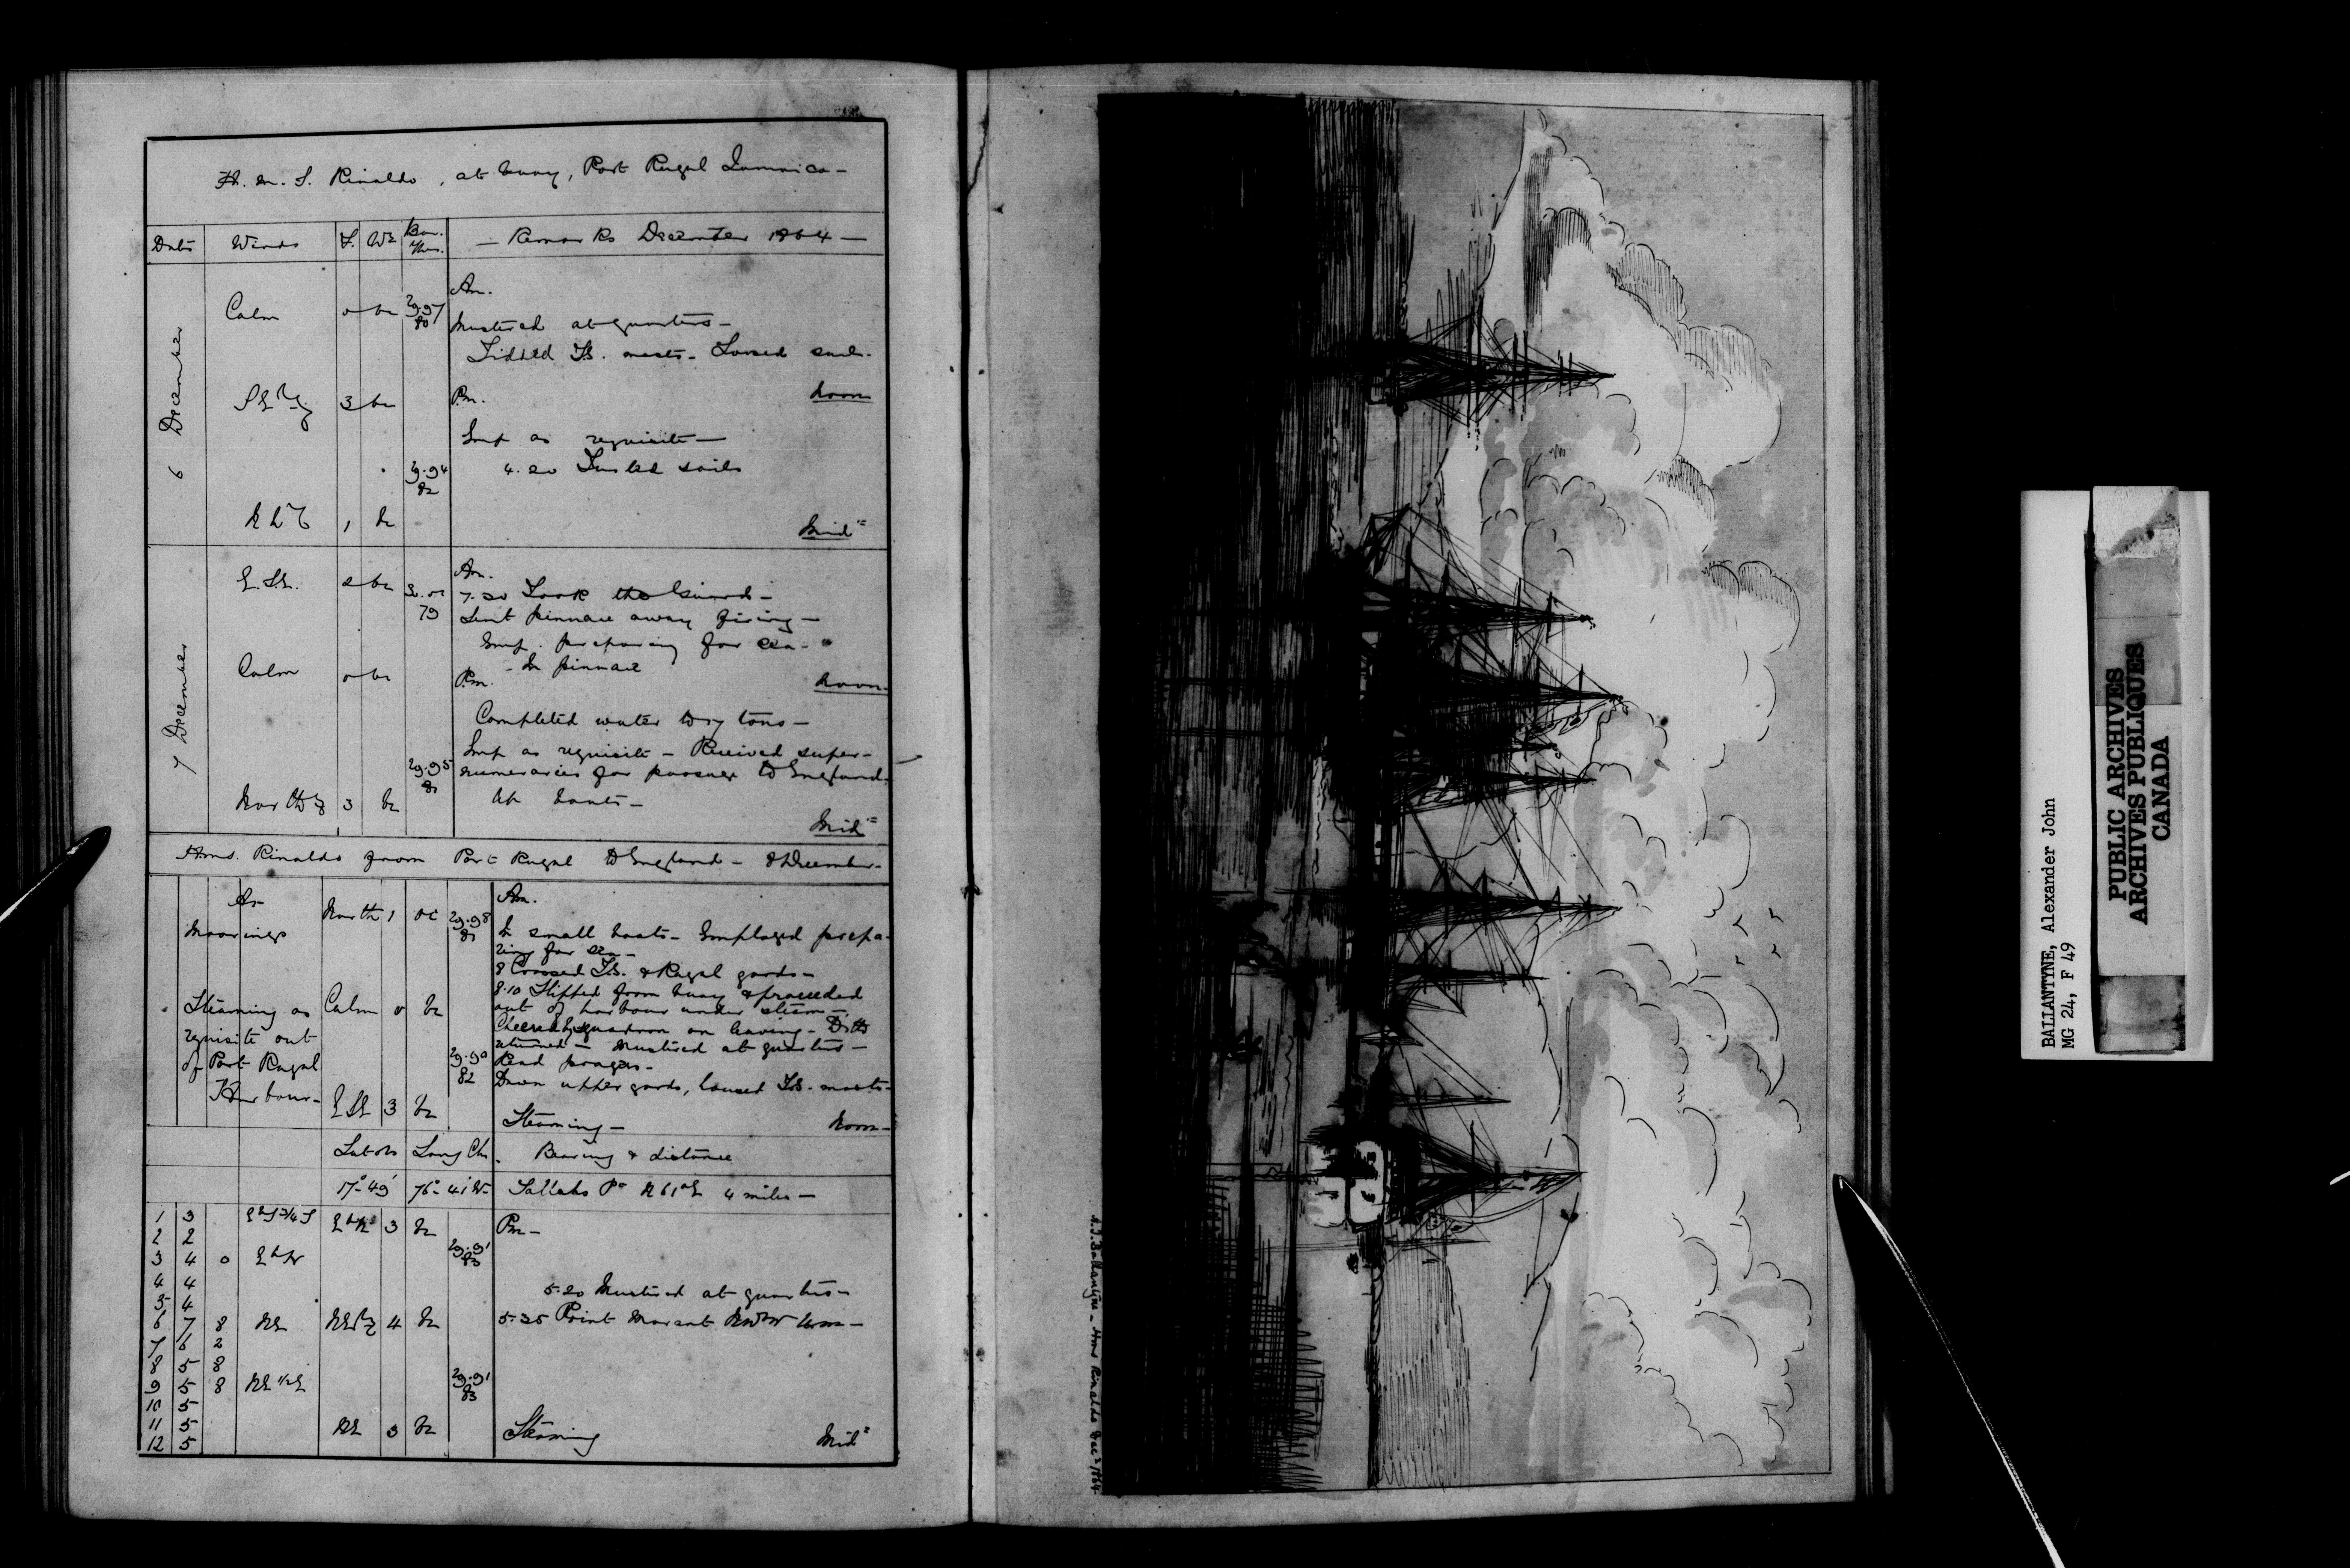 H. M. S. Rinaldo, at buoy, Port Royal Jamaica -
Date Winds F. Wr Bar. Ther. - Remarks December 1864 -
6 December
Am.
Calm 0 bc 29.97 80
Mustered at quarters -
Fidded T.G. masts - Loosed sails.
SEly 3 bc Pm. Noon
Emp as requisite -
29.94 82 4.20 Furled sails
1 bc Mid
7 December
E.S.E. 2 bc Am.
7.30 Took the Guard -
79 Sent pinnace away firing -
Emp. preparing for sea -
- In pinnace
Calm 0 bc Pm. Noon
Completed water to 59 tons -
Emp as requisite - Received super-
29.95 81 numeraries for passage to England.
Up boats -
North 3 bc
Mid
H.M.S. Rinaldo from Port Royal to England - 8 December -
At Moorings North 1 oc 29.98 81 Am.
In small boats - Employed prepa-
ring for sea -
8 Crossed T.G. & Royal yards -
8.10 Slipped from buoy & proceeded
Steaming as Calm 0 bc out of harbour under steam -
requisite out Cheered squadron on leaving - Ditto
of Port Royal returned - Mustered at quarters -
Harbour - 29.90 82 Read prayers -
Down upper yards, housed T.G. masts -
ESE 3 bc Steaming - Noon -
Lat obs Long Chr. Bearing & distance
17°-49' 76°-41'W- Pt N61°E 4 miles -
1 3 EbS¾S EbN 3 bc Pm -
2 2 29.91 83
3 4 0 EbN
4 4
5 4 5.20 Mustered at quarters -
6 7 8 NE NEly 4 bc 5.35 Point Morant
7 6 2
8 5 8
9 5 8 NE½E 29.91 83
10 5
11 5 NE 3 bc Steaming Mid
12 5
A.J. Ballantyne - HMS Rinaldo Dec 1864
BALLANTYNE, Alexander John
MG 24, F 49
PUBLIC ARCHIVES
ARCHIVES PUBLIQUES
CANADA